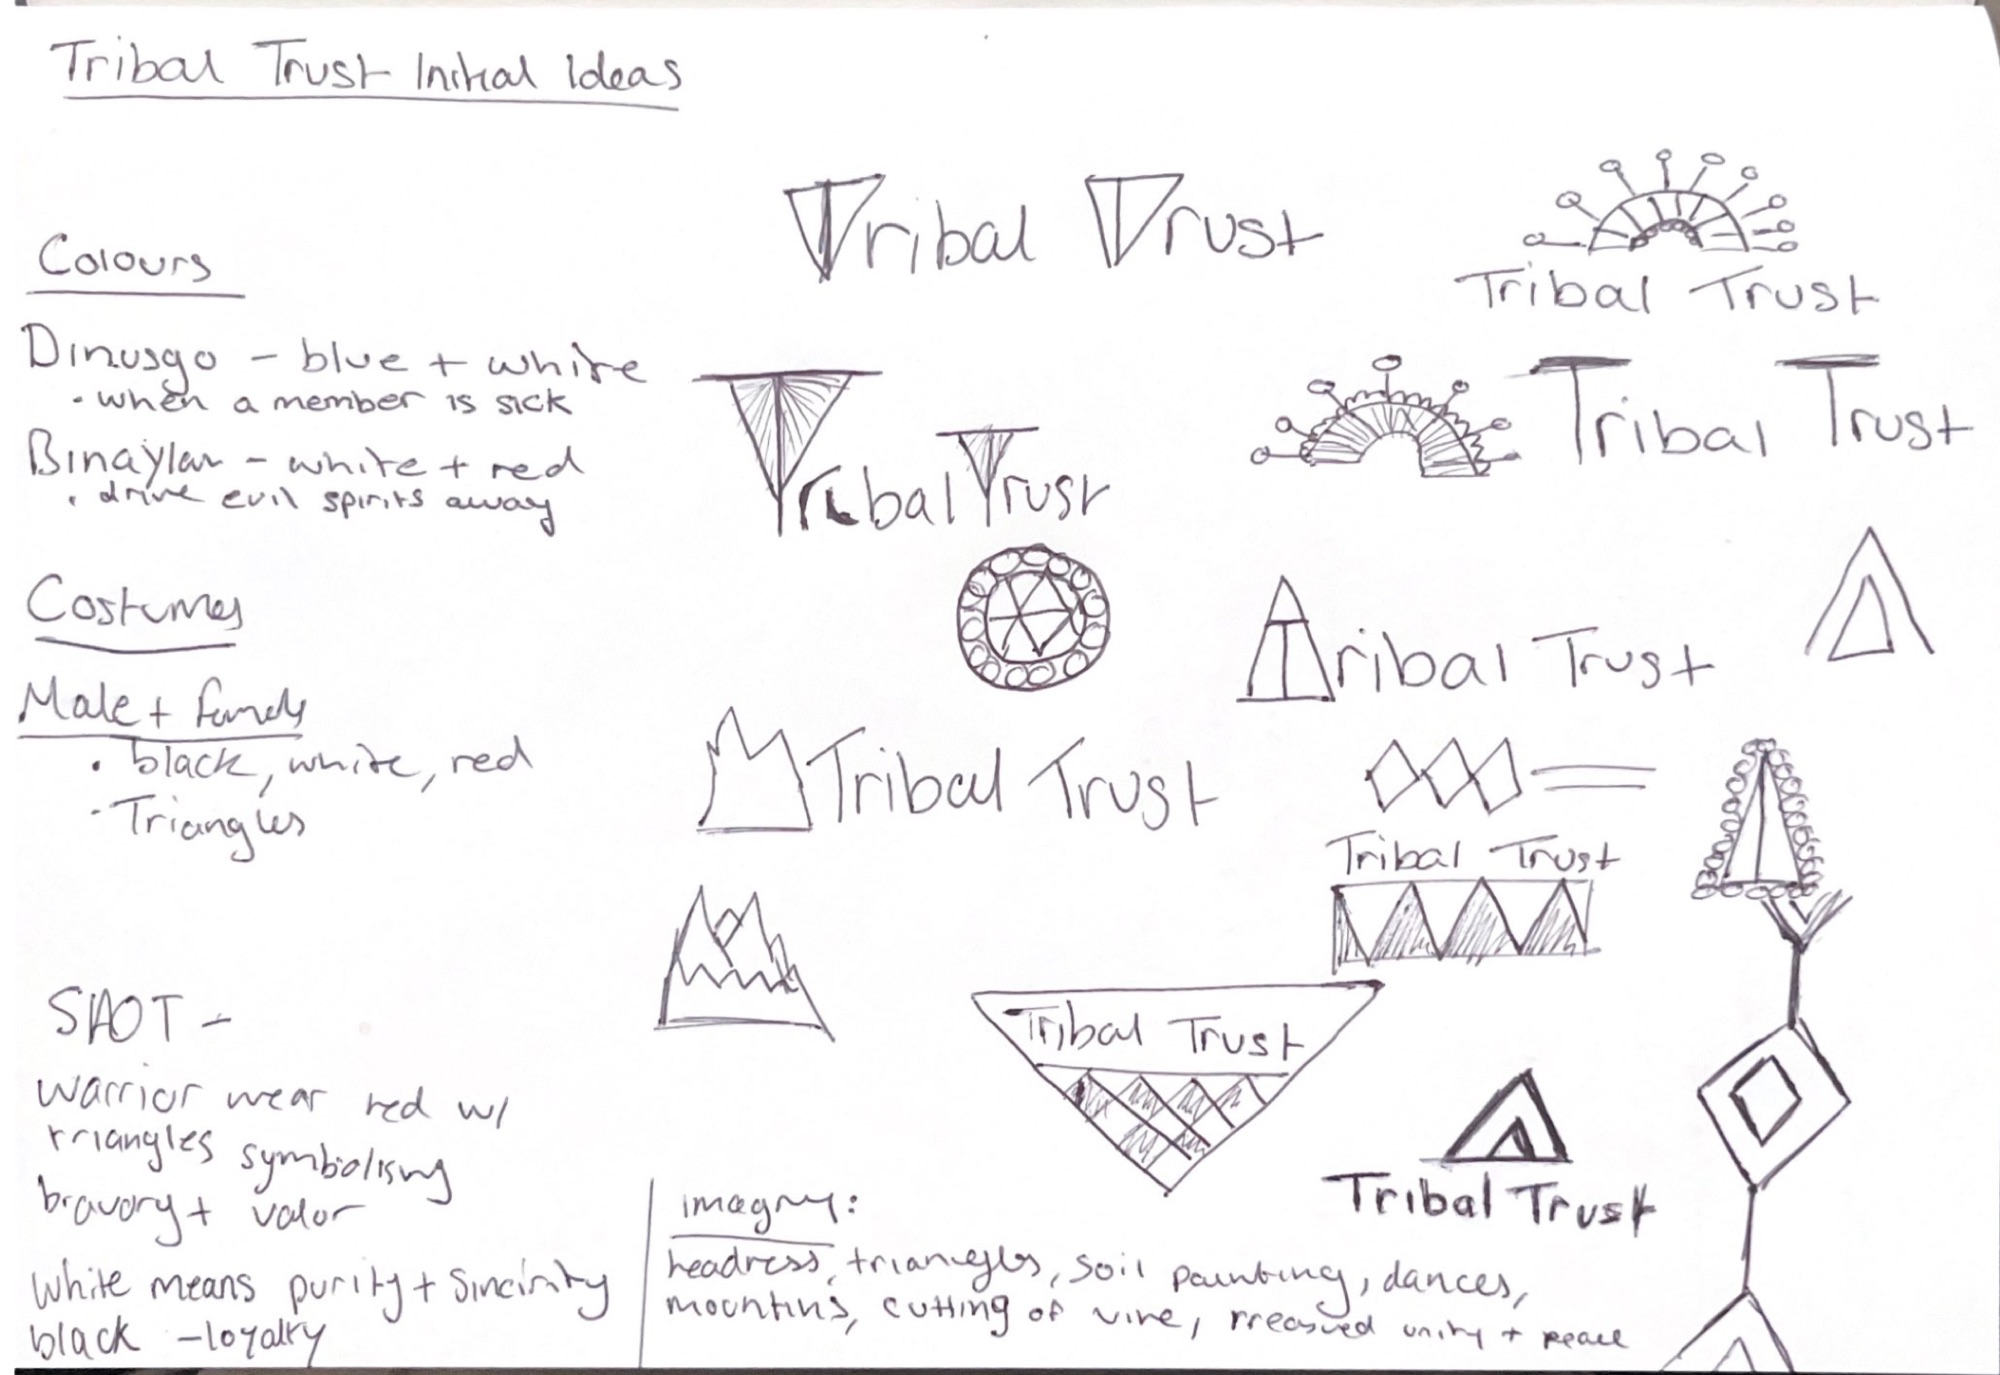 Tribal Trust Initial Ideas
Colours
Dinusgo - blue + white
• when a member is sick
Binaylan - white + red
• drive evil spirits away
Costumes
Male + female
• black, white, red
• Triangles
SAOT -
warrior wear red w/
triangles symbolising
bravory + valor
white means purity + Sincirity
black - loyalty
Tribal Trust
Tribal Trust
Tribal Trust
Tribal Trust
Tribal Trust
Tribal Trust
Tribal Trust
Tribal Trust
Tribal Trust
imagry:
headress, triangles, soil painting, dances,
mountins, cutting of vine, unity + peace